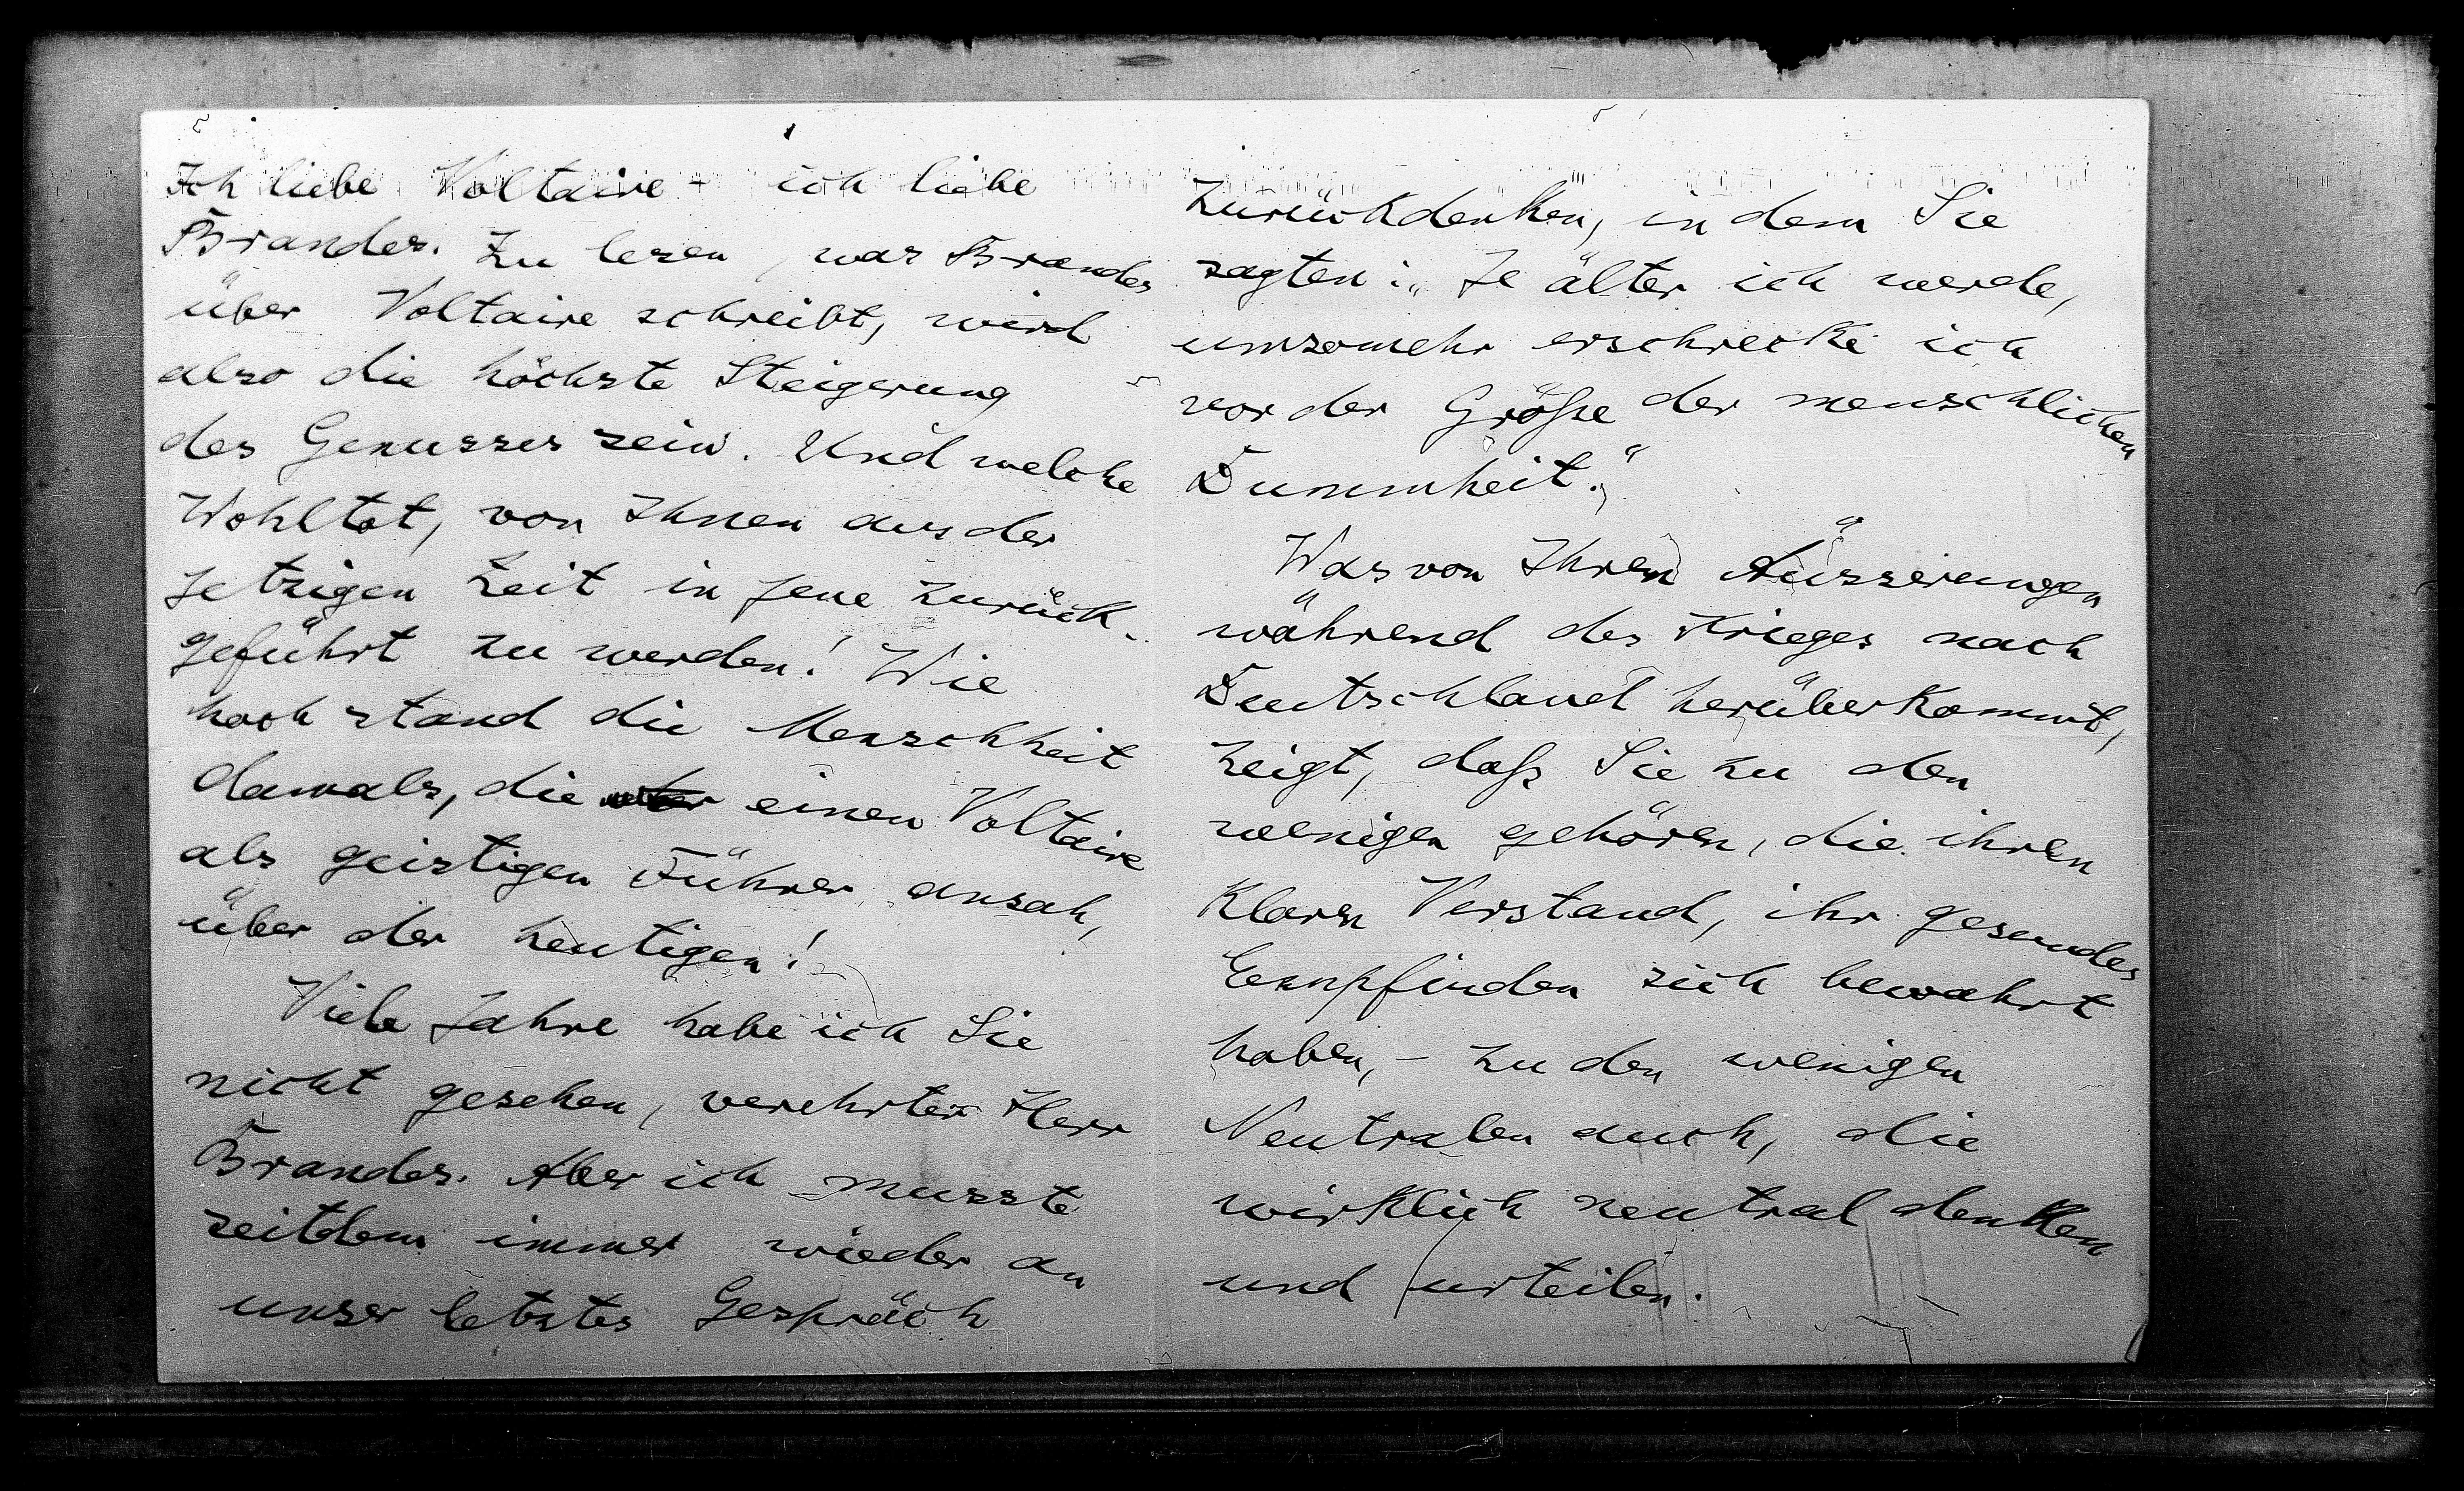 Ich liebe Voltaire - ich liebe
Brandes. Zu lesen, was Brandes
über Voltaire schreibt, wird
also die höchste Steigerung
des Genusses sein. Und welche
Wohltat, von Ihnen aus der
jetzigen Zeit in jene zurück-
geführt zu werden! Wie
hoch stand die Menschheit
damals, die einen Voltaire
als geistigen Führer ansah,
über der heutigen!
Viele Jahre habe ich Sie
nicht gesehen, verehrter Herr
Brandes. Aber ich musste
seitdem immer wieder an
unser letztes Gespräch
zurückdenken, in dem Sie
sagten: „Je älter ich werde,
umsomehr erschrecke ich
vor der Größe der menschlichen
Dummheit."
Was von Ihren Äusserungen
während des Krieges nach
Deutschland herüberkommt,
zeigt, daß Sie zu den
wenigen gehören, die ihren
klaren Verstand, ihr gesundes
Eempfinden sich bewahrt
haben, - zu den wenigen
Neutralen auch, die
wirklich neutral denken
und urteilen.